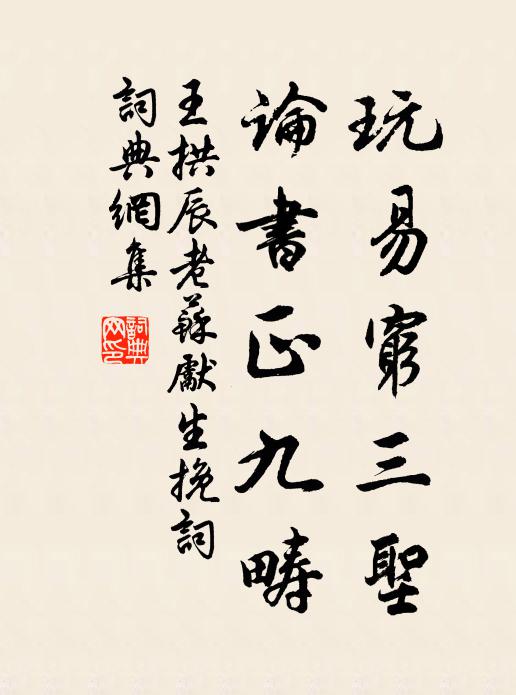 玩易窮三聖
論書正九疇
王拱辰老蘇獻生挽詞
詞典網集
詞典网印